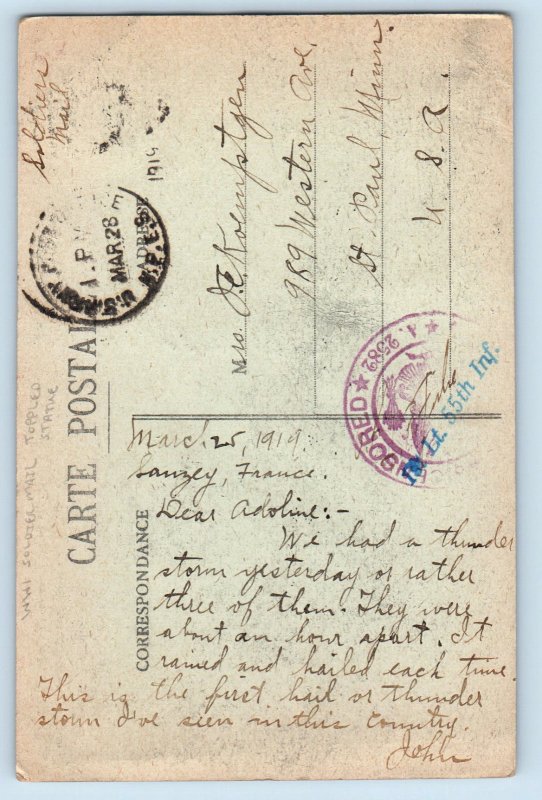 Soldiers
Mail
U.S. ARMY
1 P.M
MAR 28
M.P.E.S.
1919
ADRESSE
Mrs. J.C. Koemptgen
989 Western Ave.
St. Paul, Minn.
U. S. A.
CARTE POSTALE
CORRESPONDANCE
WWI SOLDIER MAIL TOPPLED
STATUE
CENSORED ★ A. 2582 ★
1st Lt. 55th Inf.
March 25, 1919.
Sanzey, France.
Dear Adoline:-
We had a thunder
storm yesterday or rather
three of them. They were
about an hour apart. It
rained and hailed each time.
This is the first hail or thunder
storm I've seen in this country.
John